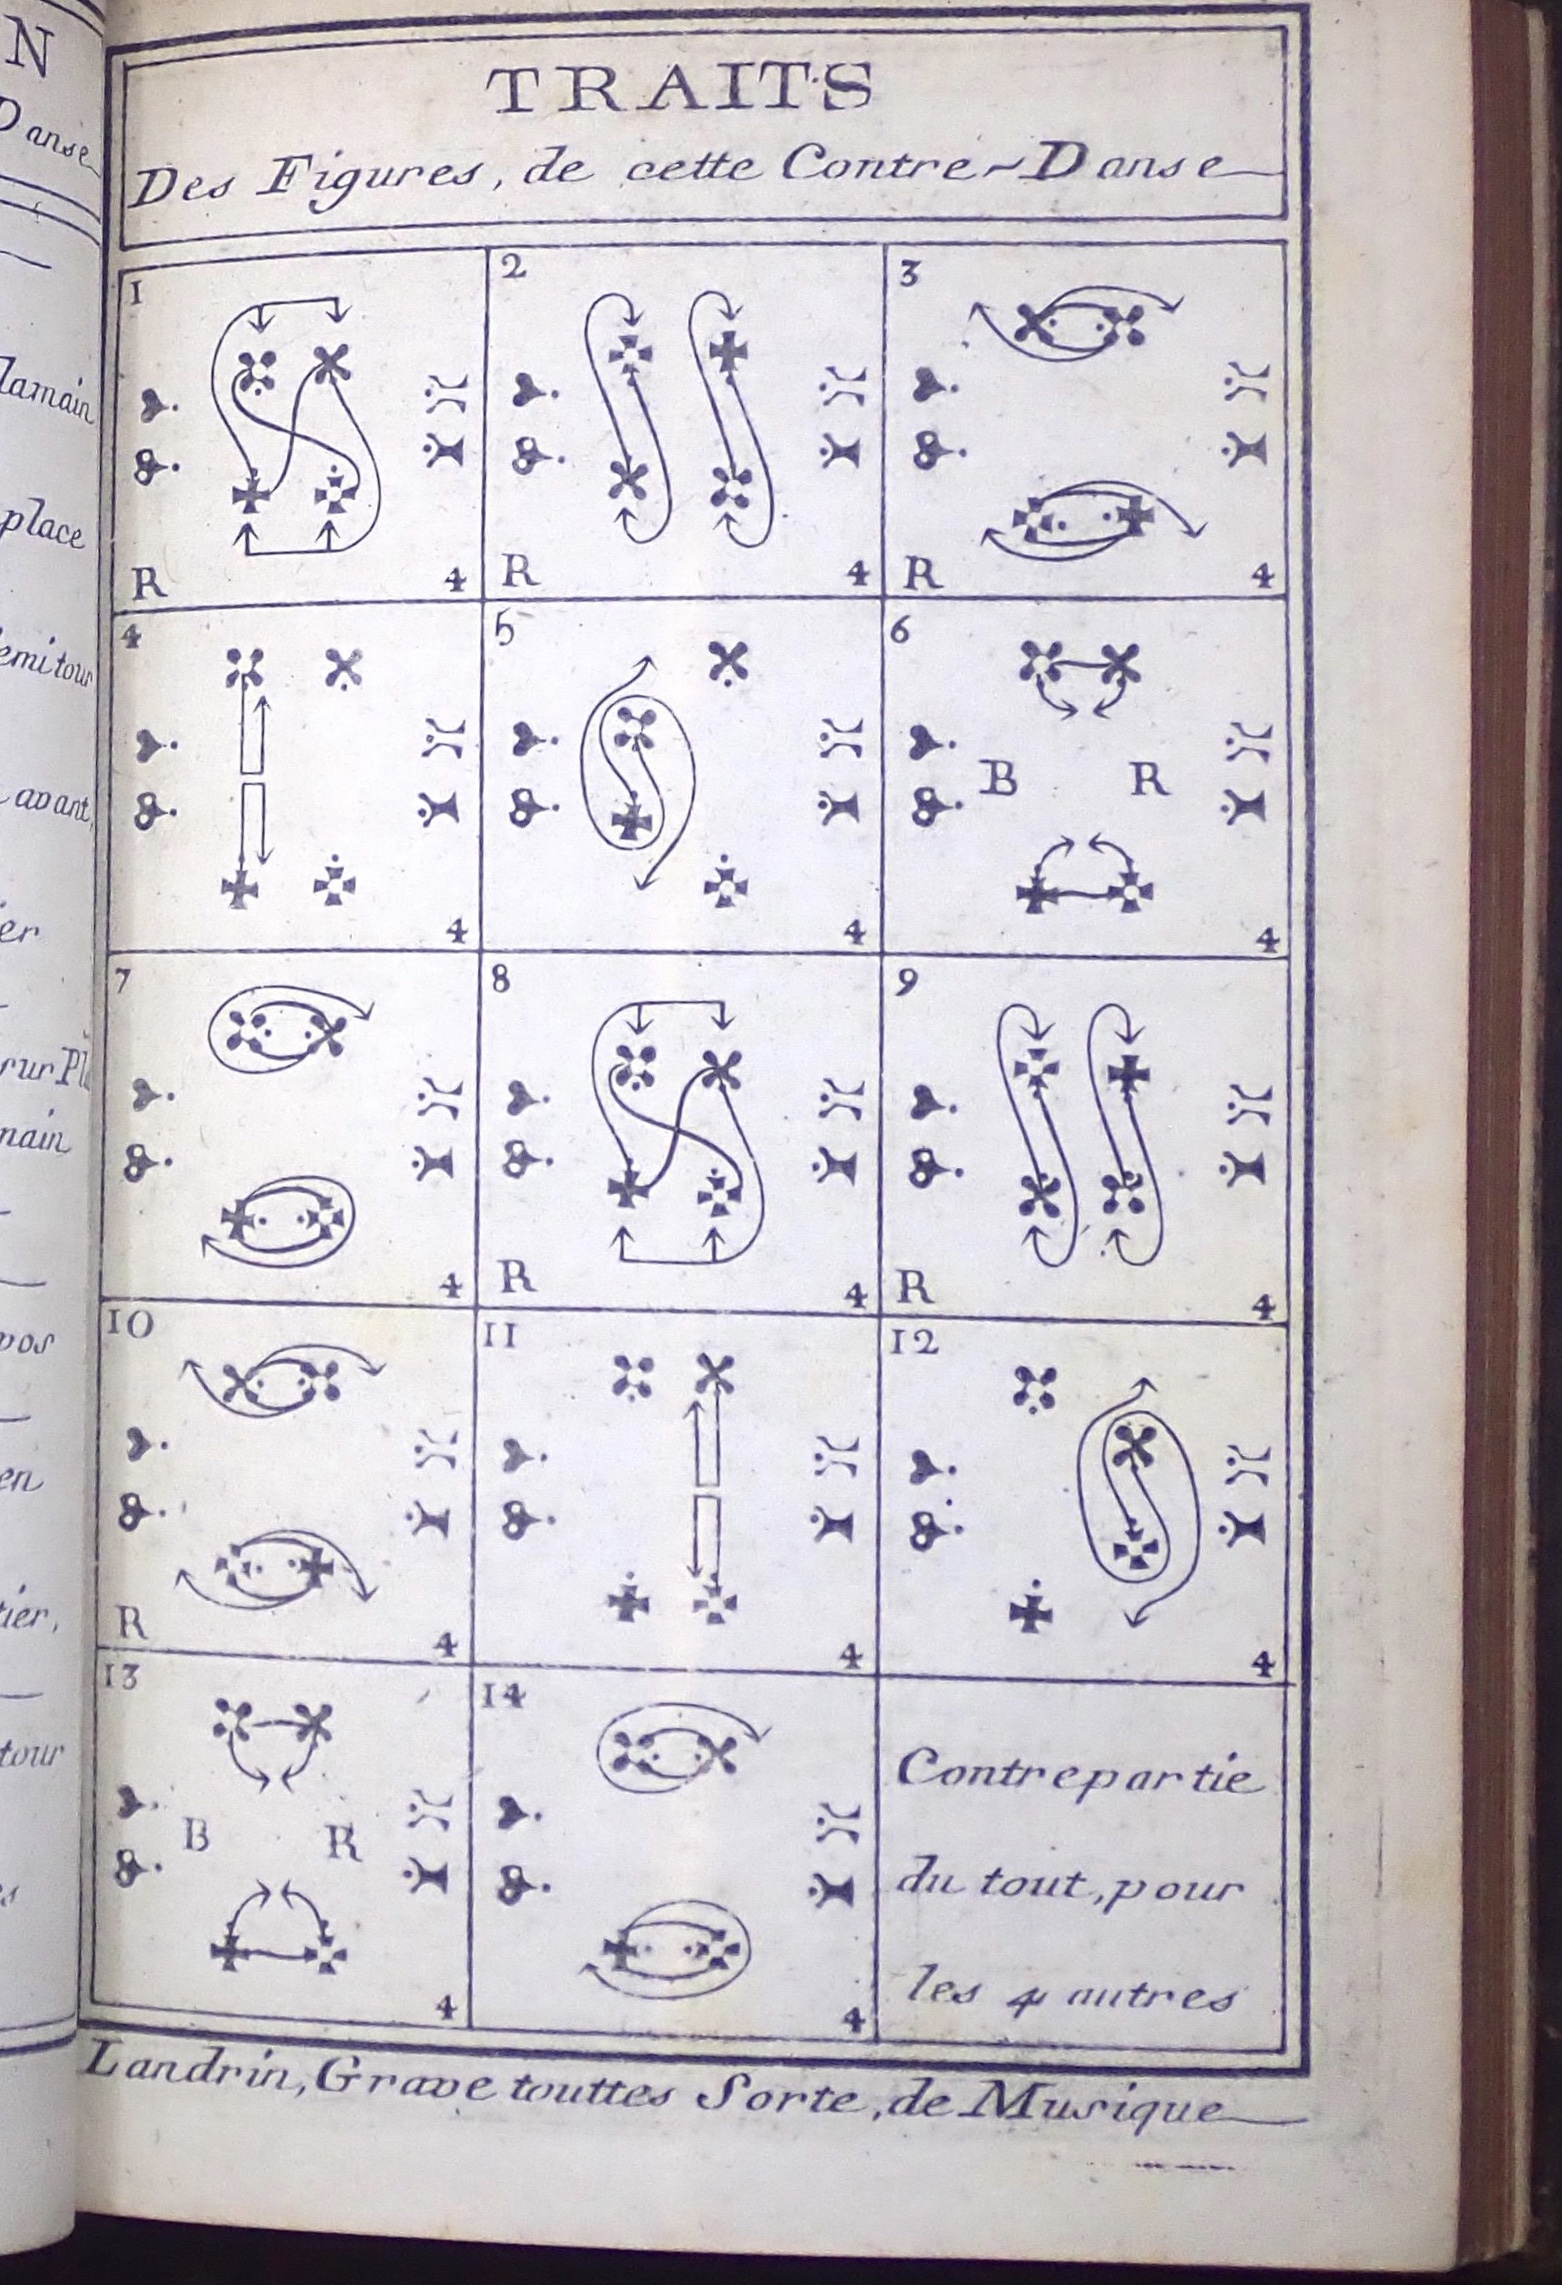 N
Danse
lamain
place
emi tour
avant,
er
sur Pl
main
vos
en
tier,
tour
TRAITS
Des Figures, de cette Contre-Danse
1
R 4
2
R 4
3
R 4
4
4
5
4
6
B R
4
7
4
8
R 4
9
R 4
10
R 4
11
4
12
4
13
B R
4
14
4
Contrepartie
du tout, pour
les 4 autres
Landrin, Grave touttes Sorte, de Musique